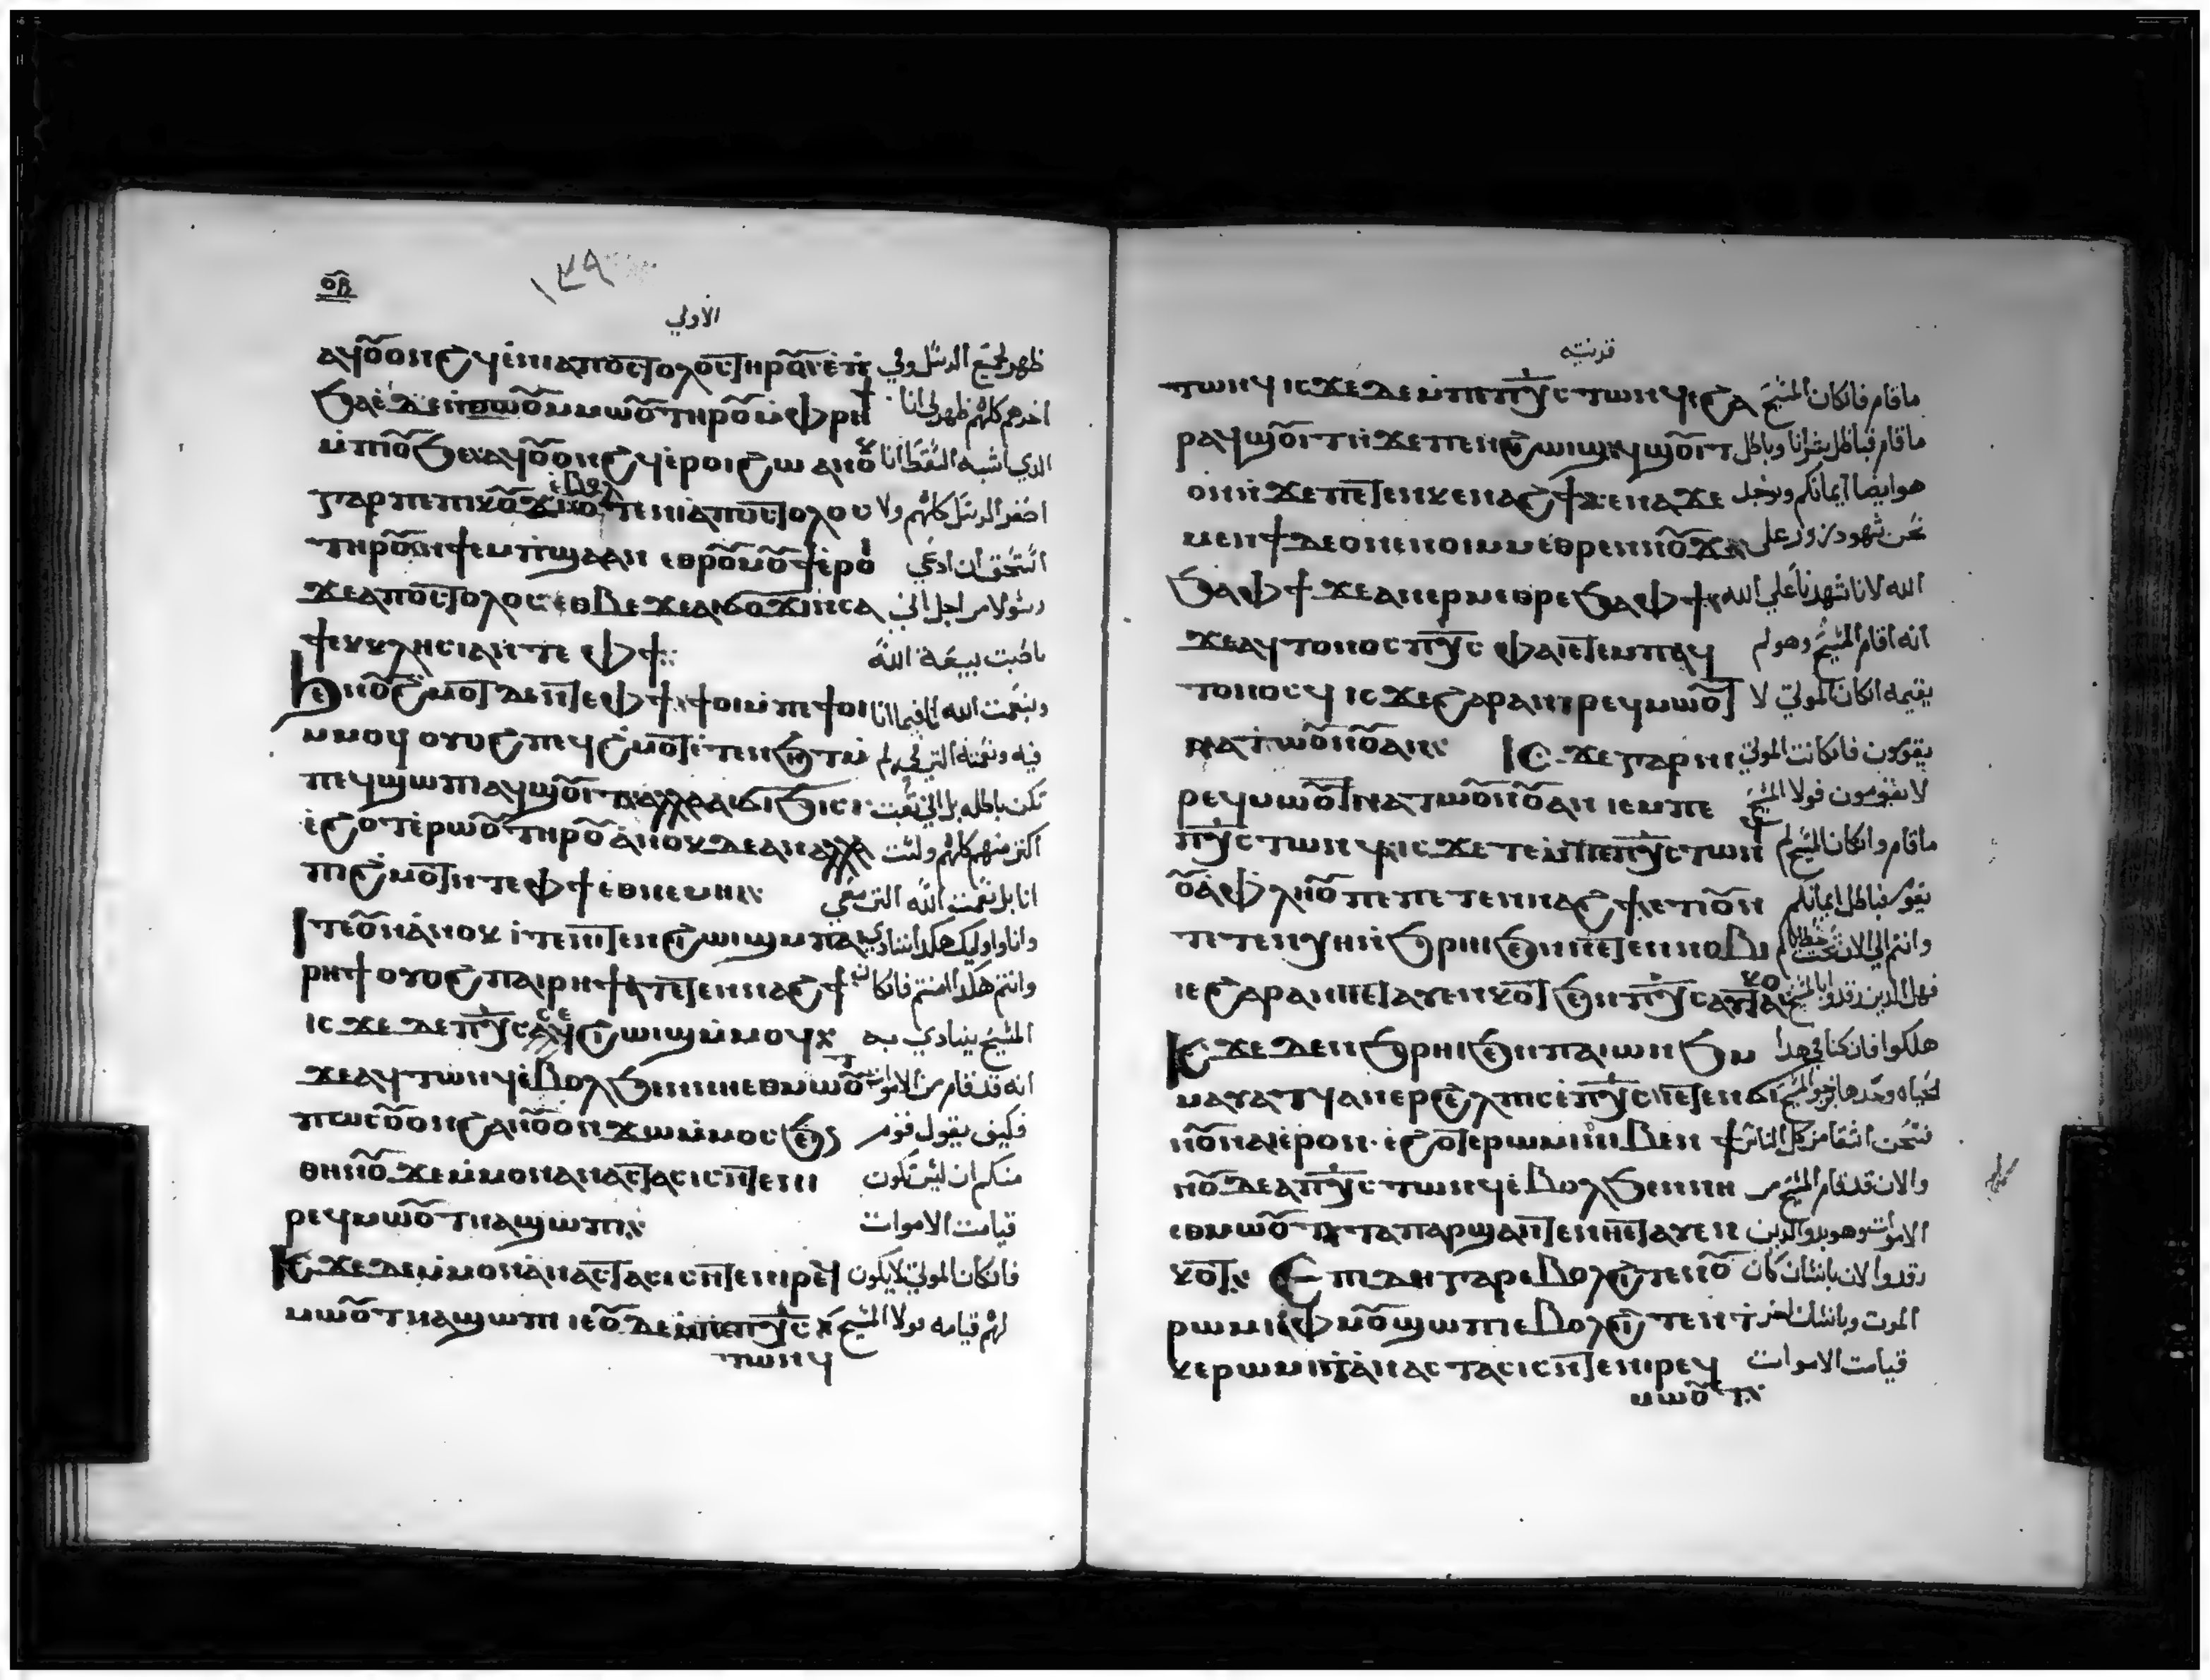 ⲟ̅ⲃ̅
١٧٩
الأولي
ⲁϥⲟⲩⲟⲛϩϥ ⲉ̇ⲛⲓⲁⲡⲟⲥⲧⲟⲗⲟⲥ ⲧⲏⲣⲟⲩ ظهر لجميع الرسل وفي
ϧⲁⲉ̇ ⲇⲉ ⲙ̇ⲙⲱⲟⲩ ⲧⲏⲣⲟⲩ ⲙ̇ⲫⲣⲏϯ اخرهم كلهم ظهر لي انا
ⲙ̇ⲡⲓⲟⲩϧⲉ ⲁϥⲟⲩⲟⲛϩϥ ⲉ̇ⲣⲟⲓ ϩⲱ ⲁⲛⲟⲕ الذي اشبه السقط انا
ⲅⲁⲣ ⲡⲉ ⲡⲓⲕⲟⲩϫⲓ ⲉ̇ⲃⲟⲗ ⲟⲩⲧⲉ ⲛⲓⲁⲡⲟⲥⲧⲟⲗⲟⲥ اصغر الرسل كلهم ولا
ⲧⲏⲣⲟⲩ ⲛϯⲉⲙⲡϣⲁ ⲁⲛ ⲉⲑⲣⲟⲩⲙⲟⲩϯ ⲉ̇ⲣⲟⲓ استحق ان ادعي
ϫⲉ ⲁⲡⲟⲥⲧⲟⲗⲟⲥ ⲉⲑⲃⲉ ϫⲉ ⲁⲓϭⲟϫⲓ ⲛⲥⲁ رسولا من اجل اني
ϯⲉⲕⲕⲗⲏⲥⲓⲁ ⲛⲧⲉ ⲫϯ ناصبت بيعة الله
ϧⲉⲛ ⲟⲩϩⲙⲟⲧ ⲇⲉ ⲛⲧⲉ ⲫϯ ϯⲟⲓ ⲙ̇ⲡⲉϯⲟⲓ وبنعمت الله انا فيما انا
ⲙ̇ⲙⲟϥ ⲟⲩⲟϩ ⲡⲉϥϩⲙⲟⲧ ⲉ̇ⲧⲉ ⲛϧⲏⲧ ⲙ̇ فيه ونعمته التي في لم
ⲡⲉϥϣⲱⲡⲓ ⲁϥϣⲟⲩⲓⲧ ⲁⲗⲗⲁ ⲁⲓϭⲓϧⲓⲥⲓ تكن باطله بل اني تعبت
ⲉ̇ϩⲟⲧⲉ̇ⲣⲱⲟⲩ ⲧⲏⲣⲟⲩ ⲁⲛⲟⲕ ⲇⲉ ⲁⲛ ⲁⲗⲗⲁ اكثر منهم كلهم ولست
ⲡⲓϩⲙⲟⲧ ⲛⲧⲉ ⲫϯ ⲉⲑⲛⲉⲙⲏⲓ انا بل نعمت الله التي معي
ⲓⲧⲉ ⲟⲩⲛ ⲁ̇ⲛⲟⲕ ⲓⲧⲉ ⲛⲏ ⲧⲉⲛϩⲓⲱⲓϣ ⲙ̇ⲡⲁⲓ وانا واوليك هكذا ننادي
ⲣⲏϯ ⲟⲩⲟϩ ⲡⲁⲓⲣⲏϯ ⲁⲧⲉⲧⲉⲛⲛⲁϩϯ وانتم هكذا امنتم فان كان
ⲓⲥϫⲉ ⲇⲉ ⲡⲭ̅ⲥ̅ ⲥⲉϩⲓⲱⲓϣ ⲙ̇ⲙⲟϥ المسيح ينادي به
ϫⲉ ⲁϥⲧⲱⲛϥ ⲉ̇ⲃⲟⲗϧⲉⲛ ⲛⲏⲉⲑⲙⲱⲟⲩⲧ انه قد قام من الاموات
ⲡⲱⲥ ⲟⲩⲟⲛ ϩⲁⲛⲟⲩⲟⲛ ϫⲱ ⲙ̇ⲙⲟⲥ ϧⲉⲛ فكيف يقول قوم
ⲑⲏⲛⲟⲩ ϫⲉ ⲙ̇ⲙⲟⲛ ⲁⲛⲁⲥⲧⲁⲥⲓⲥ ⲛⲧⲉ ⲛⲓ منكم ان ليس تكون
ⲣⲉϥⲙⲱⲟⲩⲧ ⲛⲁϣⲱⲡⲓ قيامت الاموات
ⲓⲥϫⲉ ⲇⲉ ⲙ̇ⲙⲟⲛ ⲁ̇ⲛⲁⲥⲧⲁⲥⲓⲥ ⲛⲧⲉ ⲛⲓⲣⲉϥ فان كان الموتي لا يكون
ⲙⲱⲟⲩⲧ ⲛⲁϣⲱⲡⲓ ⲓⲉ ⲟⲩⲇⲉ ⲙ̇ⲡⲉ ⲡⲭ̅ⲥ̅ لهم قيامه ولا المسيح
ⲧⲱⲛϥ
قرنتيه
ⲧⲱⲛϥ ⲓⲥϫⲉ ⲇⲉ ⲙ̇ⲡⲉ ⲡⲭ̅ⲥ̅ ⲧⲱⲛϥ ϩⲁ ما قام فان كان المسيح
ⲣⲁϥϣⲟⲩⲓⲧ ⲛϫⲉ ⲡⲉⲛϩⲓⲱⲓϣ ϥϣⲟⲩⲓⲧ ما قام فباطل بشرانا وباطل
ⲟⲛ ⲛϫⲉ ⲡⲉⲧⲉⲛⲕⲉⲛⲁϩϯ ⲥⲉⲛⲁϫⲉ هو ايضا ايمانكم ونوجد
ⲙⲉⲛ ϯ ⲇⲉ ⲟⲛ ⲉⲛⲟⲓ ⲙ̇ⲙⲉⲑⲣⲉ ⲛⲛⲟⲩϫ نحن شهود زور علي
ϧⲁ ⲫϯ ϫⲉ ⲁⲛⲉⲣⲙⲉⲑⲣⲉ ϧⲁ ⲫϯ الله لانا شهدنا علي الله
ϫⲉ ⲁϥⲧⲟⲩⲛⲟⲥ ⲡⲭ̅ⲥ̅ ⲫⲁⲓ ⲉⲧⲉ ⲙⲡⲉϥ انه اقام المسيح وهو لم
ⲧⲟⲩⲛⲟⲥϥ ⲓⲥϫⲉ ϩⲁⲣⲁ ⲛⲓⲣⲉϥⲙⲱⲟⲩⲧ يقيمه ان كان الموتي لا
ⲛⲁⲧⲱⲟⲩⲛⲟⲩ ⲁⲛ ⲓⲥϫⲉ ⲅⲁⲣ ⲛⲓ يقومون فان كانت الموتي
ⲣⲉϥⲙⲱⲟⲩⲧ ⲛⲁⲧⲱⲟⲩⲛⲟⲩ ⲁⲛ ⲓⲉ ⲙⲡⲉ لا يقومون فولا المسيح
ⲡⲭ̅ⲥ̅ ⲧⲱⲛϥ ⲓⲥϫⲉ ⲇⲉ ⲙ̇ⲡⲉ ⲡⲭ̅ⲥ̅ ⲧⲱⲛϥ ما قام وان كان المسيح لم
ⲟⲩⲉ̇ⲫⲗⲏⲟⲩ ⲡⲉ ⲡⲉⲧⲉⲛⲛⲁϩϯ ⲉⲧⲓ ⲟⲩⲛ يقوم فباطل ايمانكم
ⲧⲉⲧⲉⲛⲭⲏ ⲛϧⲣⲏⲓ ϧⲉⲛ ⲛⲉⲧⲉⲛⲛⲟⲃⲓ وانتم الي الان تحت خطاياكم
ⲓⲉ ϩⲁⲣⲁ ⲛⲏⲉⲧⲁⲩⲉⲛⲕⲟⲧ ϧⲉⲛ ⲡⲭ̅ⲥ̅ ⲁⲩⲧⲁⲕⲟ فهل الذين رقدوا بالمسيح
ⲓⲥϫⲉ ⲇⲉ ⲛϧⲣⲏⲓ ϧⲉⲛ ⲡⲁⲓⲱⲛϧ ⲙ هلكوا فان كنا في هذا
ⲙⲁⲩⲁⲧϥ ⲁⲛⲉⲣϩⲉⲗⲡⲓⲥ ⲉ̇ⲡⲭ̅ⲥ̅ ⲓⲉ ⲧⲉⲛϭⲓ الحياه وحدها نرجو المسيح
ⲛⲟⲩⲛⲁⲓ ⲉ̇ⲣⲟⲛ ⲉ̇ϩⲟⲧⲉ ⲣⲱⲙⲓ ⲛⲓⲃⲉⲛ ϯ فنحن اشقا من كل الناس
ⲛⲟⲩ ⲇⲉ ⲁ ⲡⲭ̅ⲥ̅ ⲧⲱⲛϥ ⲉ̇ⲃⲟⲗϧⲉⲛ ⲛⲏ والان قد قام المسيح من
ⲉⲑⲙⲱⲟⲩⲧ ⲧⲁⲡⲁⲣⲭⲏ ⲛⲧⲉ ⲛⲏⲉⲧⲁⲩⲉⲛ الاموات وهو بدو الذين
ⲕⲟⲧ ⲉⲡⲓⲇⲏ ⲅⲁⲣ ⲉⲃⲟⲗϩⲓⲧⲉⲛ ⲟⲩ رقدوا لان بانسان كان
ⲣⲱⲙⲓ ⲫⲙⲟⲩ ϣⲱⲡⲓ ⲉⲃⲟⲗϩⲓⲧⲉⲛ الموت وبانسان اخر
ⲕⲉⲣⲱⲙⲓ ϯⲁ̇ⲛⲁⲥⲧⲁⲥⲓⲥ ⲛⲧⲉ ⲛⲓⲣⲉϥ قيامت الاموات
ⲙⲱⲟⲩⲧ